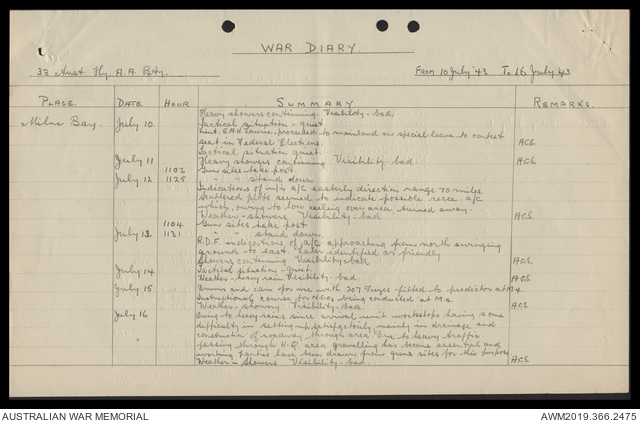 WAR DIARY
32 Aust. Hy. A.A Bty. From 10 July '43 To 16 July '43
PLACE. DATE. HOUR SUMMARY REMARKS.
Heavy showers continuing Visibility - bad.
Milne Bay. July 10. Tactical situation - quiet.
Lieut. E.A.H Laurie proceeded to mainland on special leave to contest
seat in Federal Elections. A.C.S.
Tactical situation quiet.
July 11 Heavy showers continuing Visibility - bad. A.C.S.
1102 Gun sites take post.
July 12 1125 " " stand down
Indications of a/c easterly direction range 70 miles.
Scattered plots seemed to indicate possible recce. a/c
which, owing to low ceiling over area turned away.
Weather - showers Visibility - bad A.C.S.
1104 Gun sites take post
July 13. 1131 " " stand down.
R.D.F. indications of a/c approaching from north swinging
ground to east. Later identified as friendly
Showers continuing Visibility - bad A.C.S.
July 14 Tactical situation - quiet.
Weather - heavy rain Visibility - bad. A.C.S
July 15 and cam for use with 207 Fuzes fitted to predictor at M4.
Instructional course for N.C.Os being conducted at M4
Weather - showery Visibility - bad. A.C.S
July 16 Owing to heavy rains since arrival unit workshops having some
difficulty in setting up satisfactorily, mainly in drainage and
construction of roadway through area. Due to heavy traffic
passing through H.Q. area gravelling has become essential and
working parties have been drawn from guns sites for this purpose
Weather - Showers Visibility - bad. A.C.S.
AUSTRALIAN WAR MEMORIAL AWM2019.366.2475